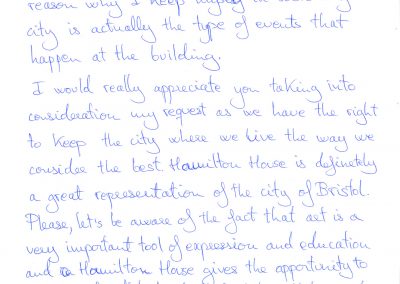 reason why I keep
city is actually the type of events that
happen at the building.
I would really appreciate you taking into
consideration my request as we have the right
to keep the city where we live the way we
consider the best. Hamilton House is definetely
a great representation of the city of Bristol.
Please, let's be aware of the fact that art is a
very important tool of expression and education
and Hamilton House gives the opportunity to